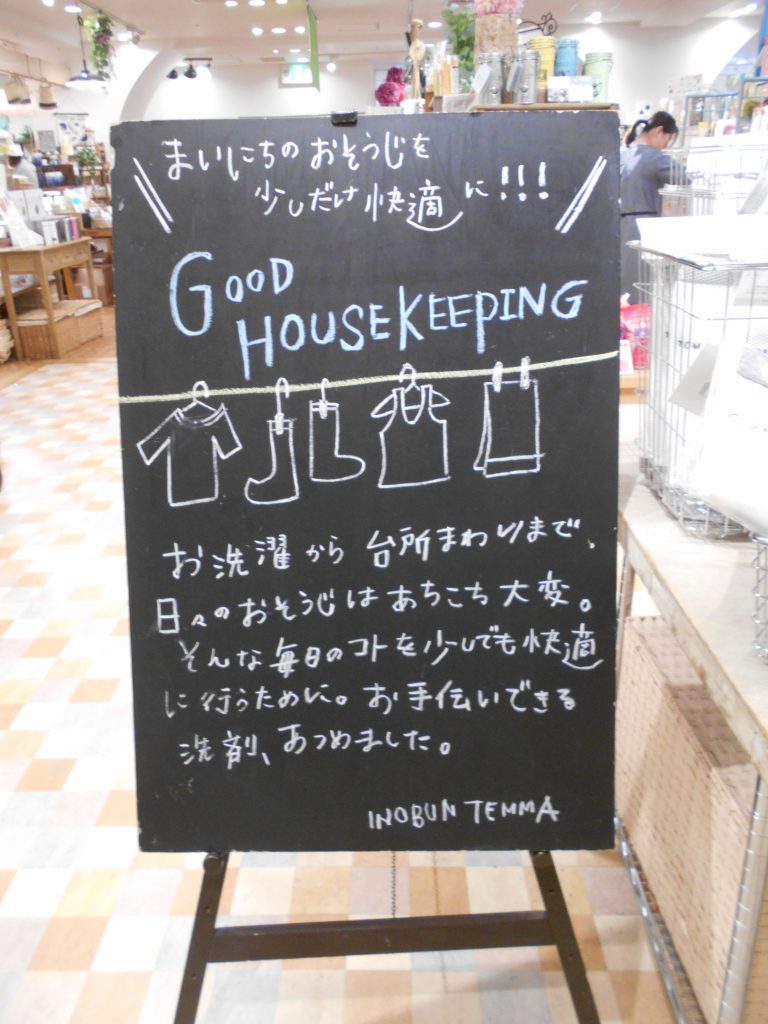 まいにちの おそうじを
少しだけ 快適に!!!
GOOD
HOUSEKEEPING
お洗濯から 台所まわりまで、
日々のおそうじは あちこち 大変。
そんな毎日のコトを少しでも快適
に行うために。お手伝いできる
洗剤、あつめました。
INOBUN TEMMA